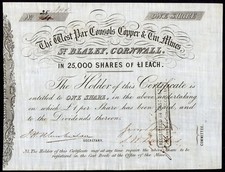 ONE SHARE
The West Par Consols Copper & Tin Mines
ST BLAZEY, CORNWALL.
IN 25,000 SHARES OF £1 EACH.
The Holder of this Certificate is
entitled to ONE SHARE, in the above undertaking
in which £1 per Share has been paid, and
to the Dividends thereon.
SECRETARY.
COMMITTEE.
N.B. The Holder of this Certificate may at any time require the
registered in the Cost Book at the Office of the Mines.